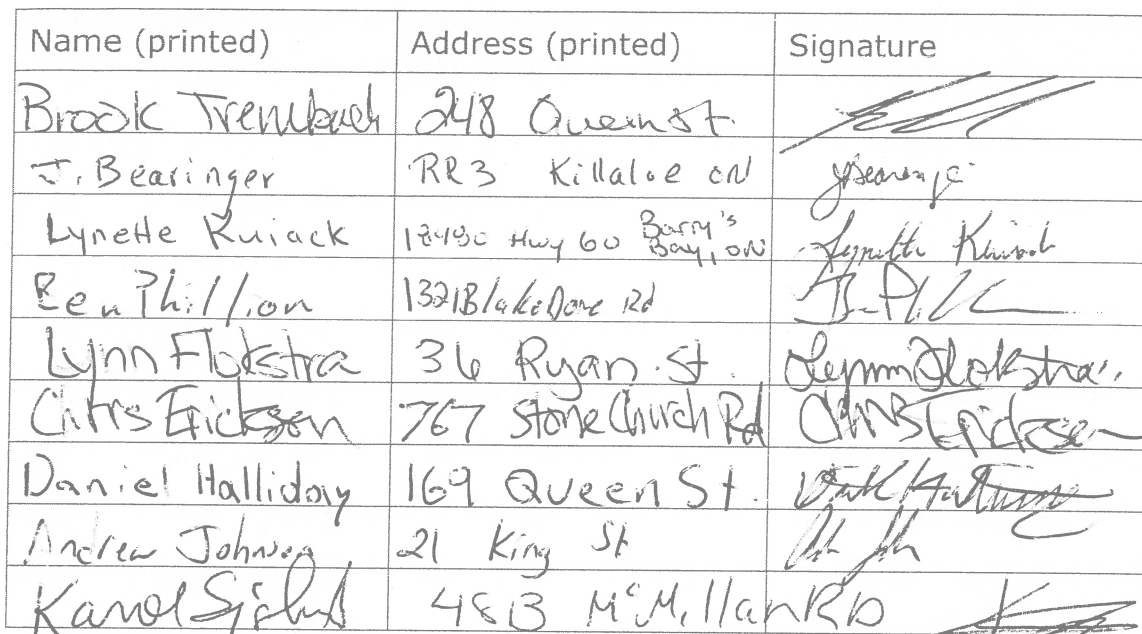 Name (printed) Address (printed) Signature
Brook 248 Queen St.
J. Bearinger RR3 Killaloe ON JBearinger
Lynette Kuiack 18480 Hwy 60 Barry's Bay, ON Lynette Kuiack
Ben Phillion 1321 Blake Dore Rd
Lynn Flokstra 36 Ryan St. Lynn Flokstra
Chris Erickson 767 Stone Church Rd Chris Erickson
Daniel Halliday 169 Queen St.
Andrew Johnson 21 King St
Karol 48B McMillan RD